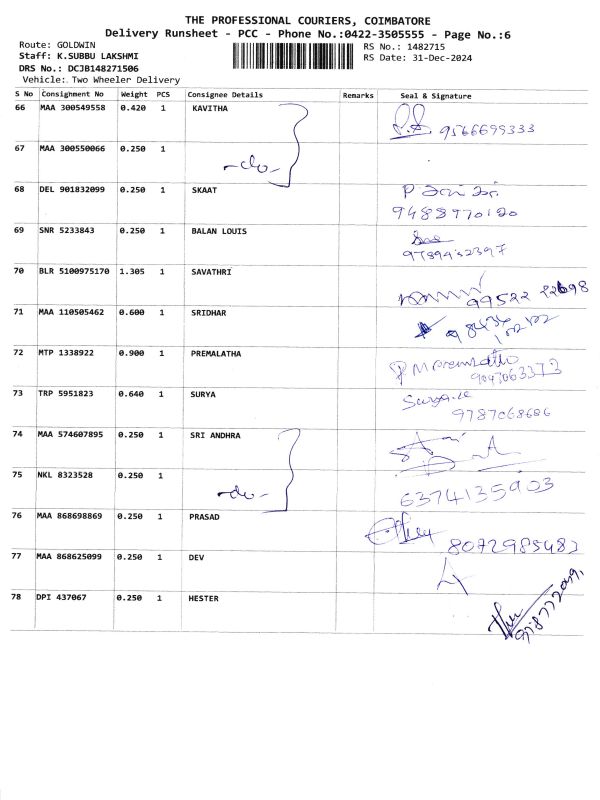 THE PROFESSIONAL COURIERS, COIMBATORE
Delivery Runsheet - PCC - Phone No.:0422-3505555 - Page No.:6
Route: GOLDWIN
RS No.: 1482715
Staff: K.SUBBU LAKSHMI
RS Date: 31-Dec-2024
DRS No.: DCJB148271506
Vehicle: Two Wheeler Delivery
S No Consignment No Weight PCS Consignee Details Remarks Seal & Signature
66 MAA 300549558 0.420 1 KAVITHA 9566699333
67 MAA 300550066 0.250 1 -do-
68 DEL 901832099 0.250 1 SKAAT
9488970120
69 SNR 5233843 0.250 1 BALAN LOUIS
9789952397
70 BLR 5100975170 1.305 1 SAVATHRI
99522 22698
71 MAA 110505462 0.600 1 SRIDHAR
72 MTP 1338922 0.900 1 PREMALATHA
P M Premlatha
9047063373
73 TRP 5951823 0.640 1 SURYA
9787068686
74 MAA 574607895 0.250 1 SRI ANDHRA
75 NKL 8323528 0.250 1 -do-
6374135903
76 MAA 868698869 0.250 1 PRASAD
8072985483
77 MAA 868625099 0.250 1 DEV
78 DPI 437067 0.250 1 HESTER